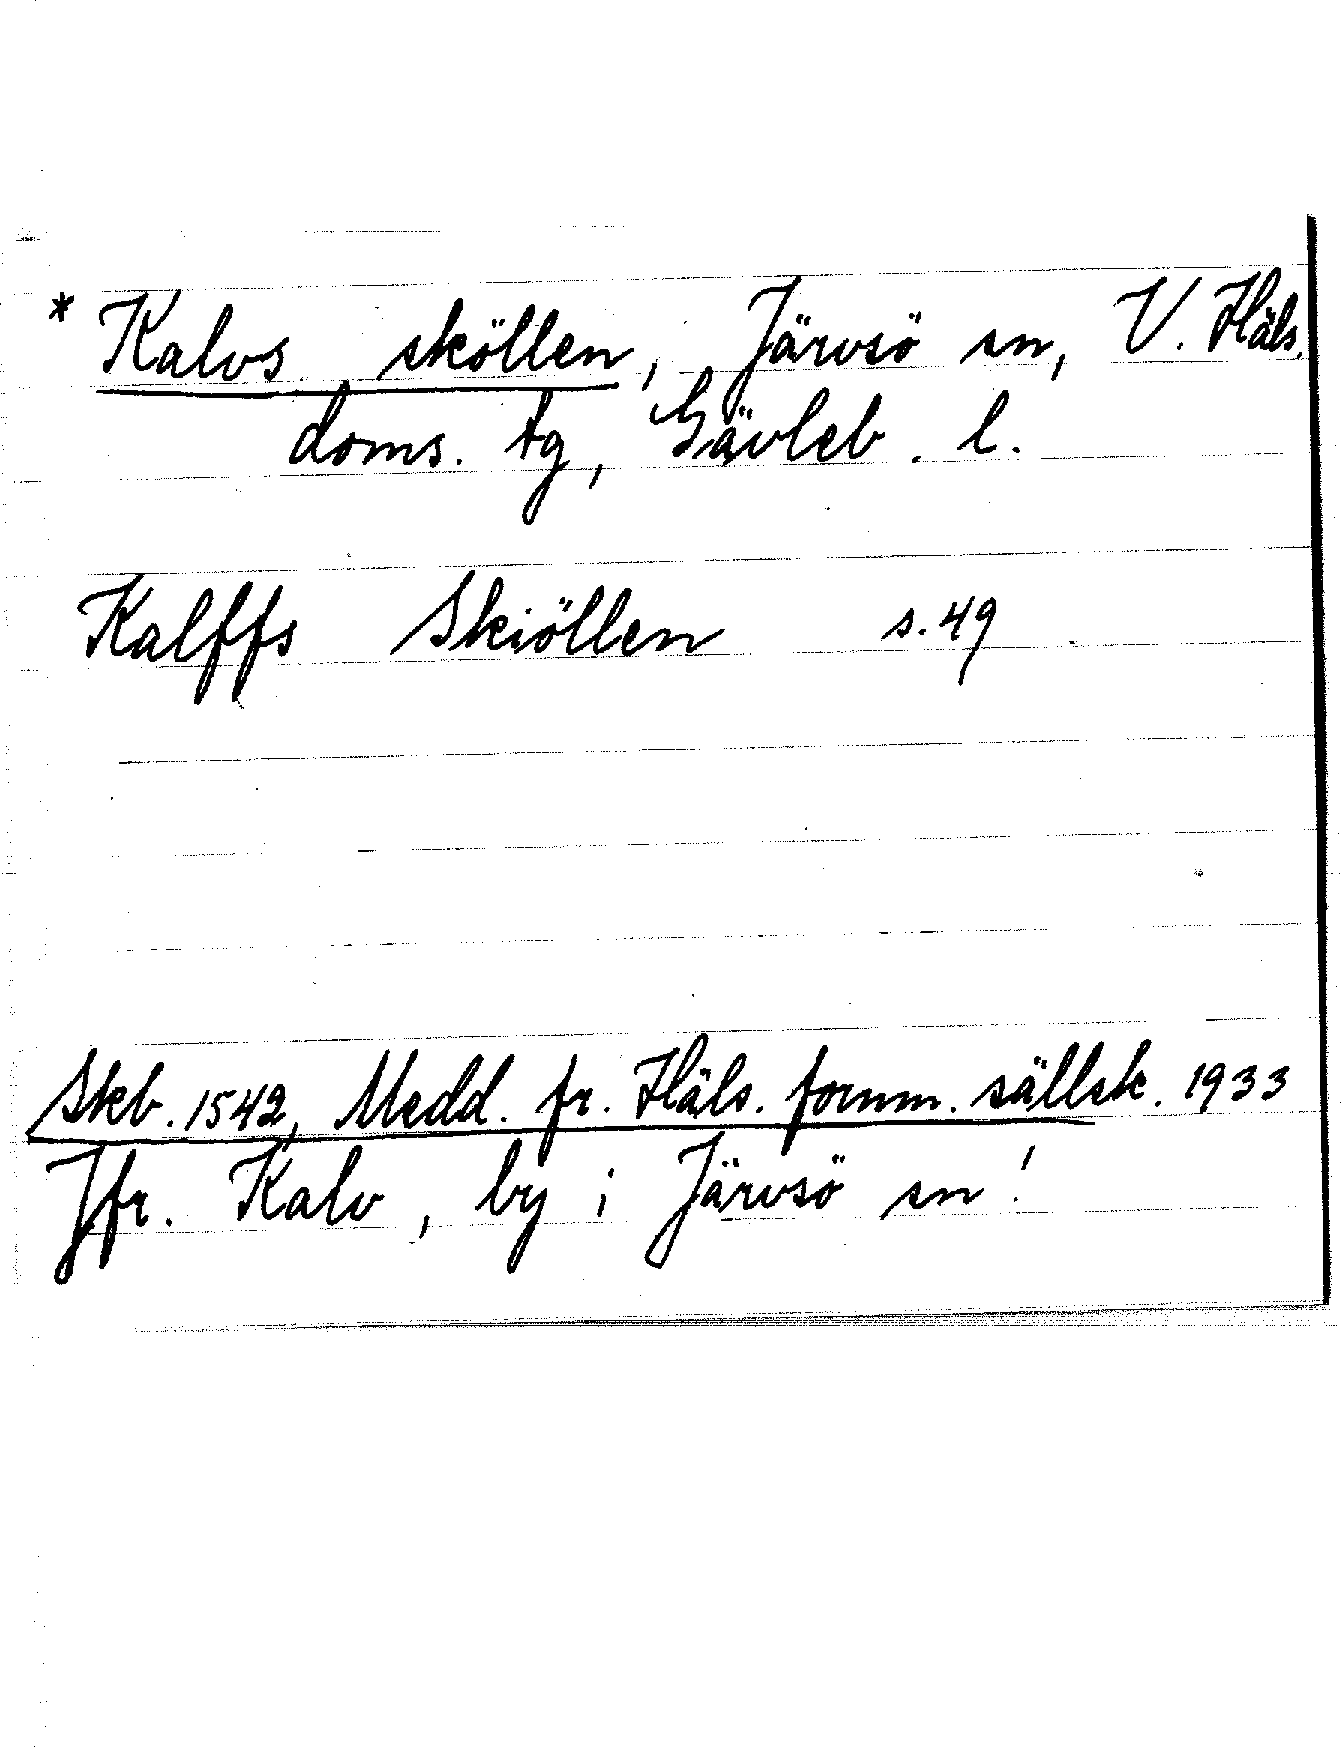 * Kalvs sköllen, Järvsö sn, V. Häls.
doms. tg, Gävleb. l.
Kalffs Skiöllen s. 49
Skb. 1542, Medd. fr. Häls. fornm. sällsk. 1933
Jfr. Kalv, by i Järvsö sn!